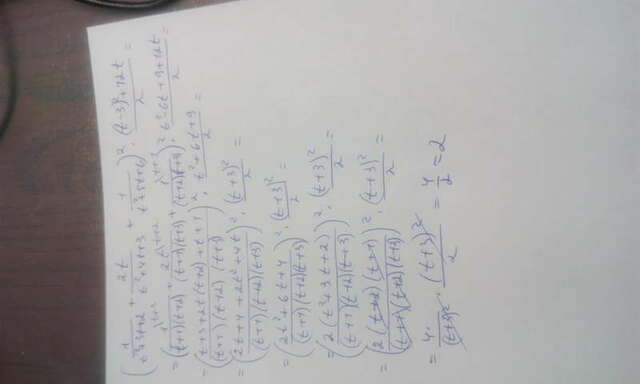 (1/(t²+3t+2) + 2t/(t²+4t+3) + 1/(t²+5t+6))² · ((t-3)²+12t)/2 =
= (1/((t+1)(t+2)) + 2t/((t+1)(t+3)) + 1/((t+2)(t+3)))² · (t²-6t+9+12t)/2 =
= ((t+3+2t(t+2)+t+1)/((t+1)(t+2)(t+3)))² · (t²+6t+9)/2 =
= ((2t+4+2t²+4t)/((t+1)(t+2)(t+3)))² · (t+3)²/2 =
= ((2t²+6t+4)/((t+1)(t+2)(t+3)))² · (t+3)²/2 =
= (2(t²+3t+2)/((t+1)(t+2)(t+3)))² · (t+3)²/2 =
= (2(t+2)(t+1)/((t+1)(t+2)(t+3)))² · (t+3)²/2 =
= 4/(t+3)² · (t+3)²/2 = 4/2 = 2